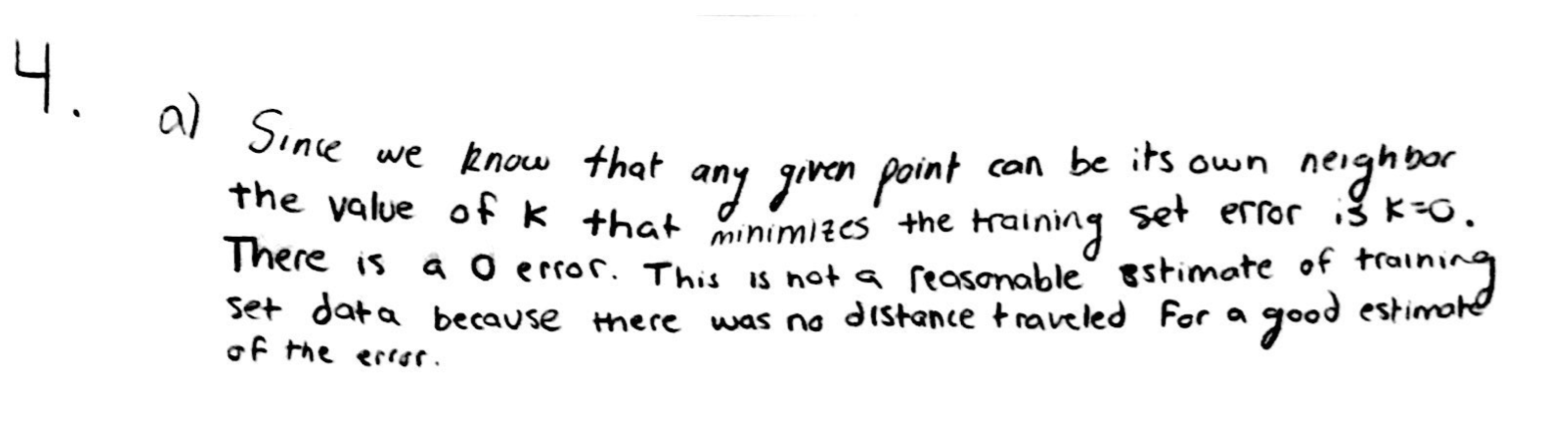 4.
a) Since we know that any given point can be its own neighbor
the value of k that minimizes the training set error is k=0.
There is a 0 error. This is not a reasonable estimate of training
set data because there was no distance traveled for a good estimate
of the error.